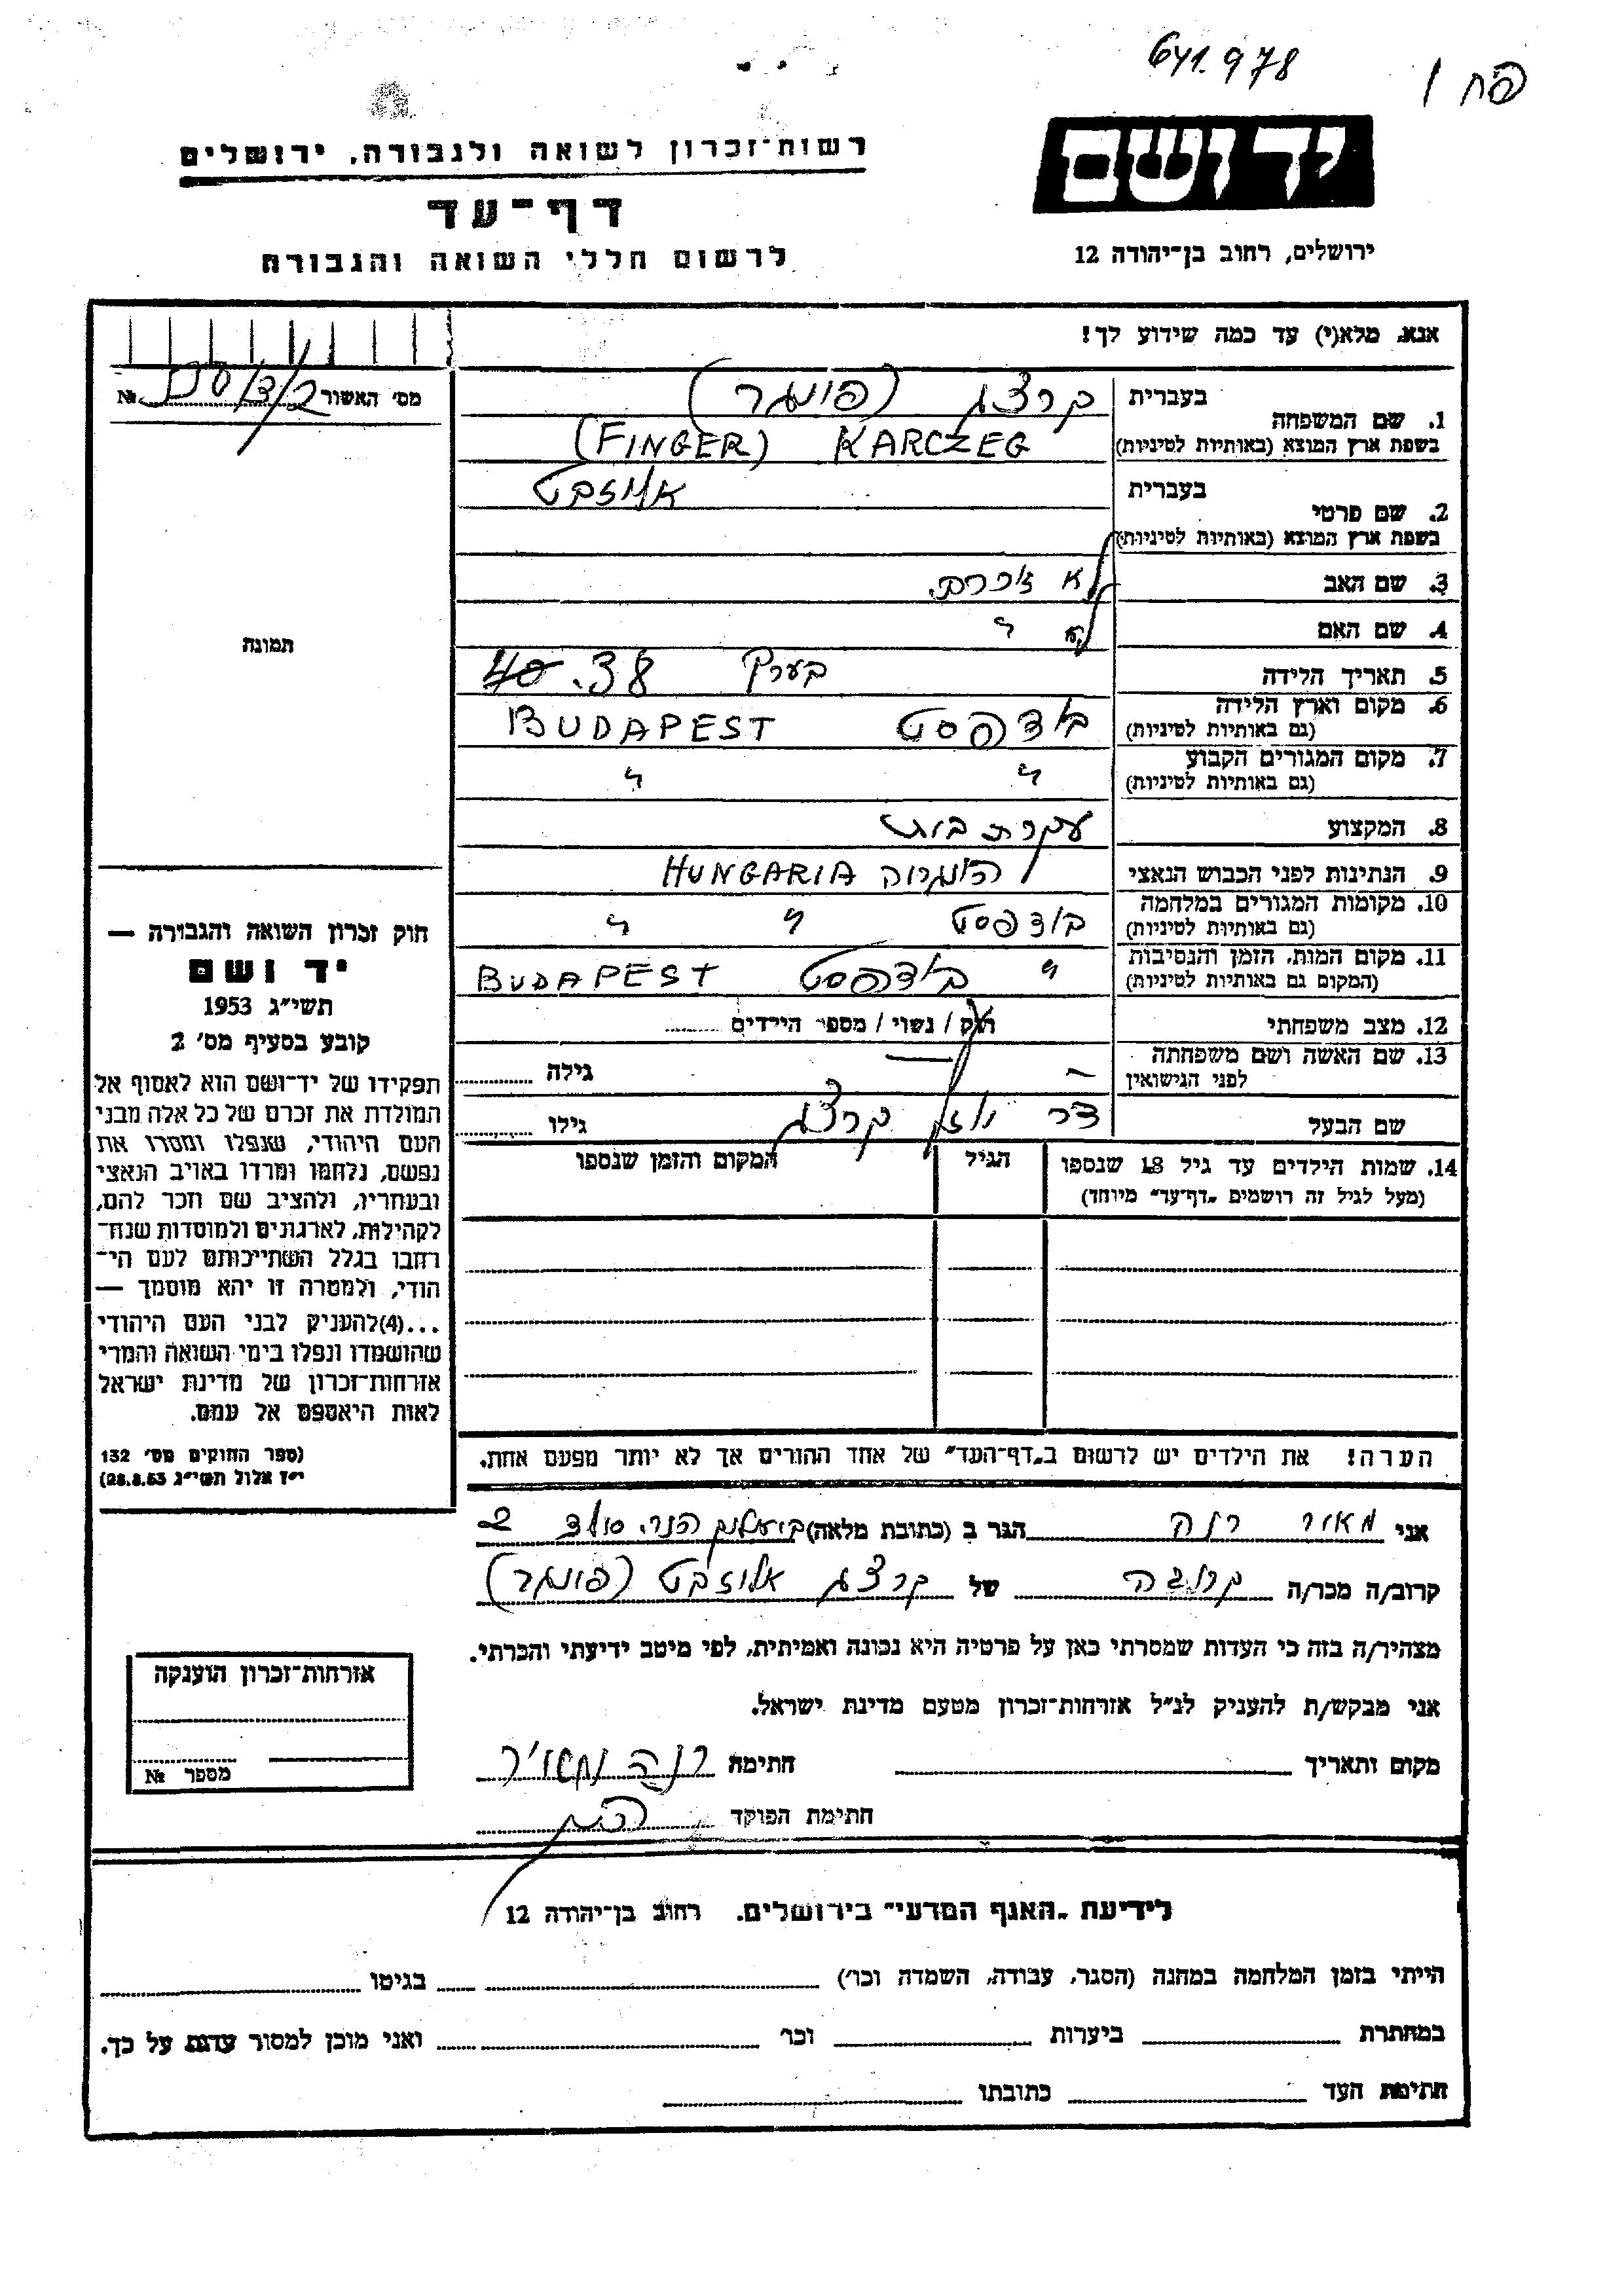 641.978
פח 1
יד ושם
רשות־זכרון לשואה ולגבורה, ירושלים
דף־עד
לרשום חללי השואה והגבורה
ירושלים, רחוב בן־יהודה 12
אנא, מלא(י) עד כמה שידוע לך!
מס׳ האשור №
בעברית קרצג (פינגר)
1. שם המשפחה
בשפת ארץ המוצא (באותיות לטיניות) (FINGER) KARCZEG
בעברית אליזבט
2. שם פרטי
בשפת ארץ המוצא (באותיות לטיניות)
3. שם האב לא זוכרת.
4. שם האם לא "
תמונה
5. תאריך הלידה בערך 38. 40
6. מקום וארץ הלידה בודפסט BUDAPEST
(גם באותיות לטיניות)
7. מקום המגורים הקבוע " "
(גם באותיות לטיניות)
8. המקצוע עקרת בית
9. הנתינות לפני הכבוש הנאצי הונגריה HUNGARIA
10. מקומות המגורים במלחמה בודפסט " "
(גם באותיות לטיניות)
11. מקום המות, הזמן והנסיבות " בודפסט BUDAPEST
(המקום גם באותיות לטיניות)
12. מצב משפחתי רוק / נשוי / מספר הילדים
13. שם האשה ושם משפחתה – גילה
לפני הנישואין
שם הבעל דר קרצג גילו
14. שמות הילדים עד גיל 18 שנספו הגיל המקום והזמן שנספו
(מעל לגיל זה רושמים „דף־עד" מיוחד)
חוק זכרון השואה והגבורה —
יד ושם
תשי״ג 1953
קובע בסעיף מס׳ 2
תפקידו של יד־ושם הוא לאסוף אל
המולדת את זכרם של כל אלה מבני
העם היהודי, שנפלו ומסרו את
נפשם, נלחמו ומרדו באויב הנאצי
ובעוזריו, ולהציב שם וזכר להם,
לקהילות, לארגונים ולמוסדות שנח־
רחבו בגלל השתייכותם לעם הי־
הודי, ולמטרה זו יהא מוסמך —
...(4)להעניק לבני העם היהודי
שהושמדו ונפלו בימי השואה והמרי
אזרחות־זכרון של מדינת ישראל
לאות היאספם אל עמם.
(ספר החוקים מס׳ 132
י״ז אלול תשי״ג 28.8.53)
הערה! את הילדים יש לרשום ב„דף־העד" של אחד ההורים אך לא יותר מפעם אחת.
אני מאיר רנה הגר ב (כתובת מלאה) סולד 2
קרוב/ה מכר/ה קרובה של קרצג אליזבט (פינגר)
מצהיר/ה בזה כי העדות שמסרתי כאן על פרטיה היא נכונה ואמיתית, לפי מיטב ידיעתי והכרתי.
אני מבקש/ת להעניק לנ״ל אזרחות־זכרון מטעם מדינת ישראל.
מקום ותאריך חתימה רנה מאיר
חתימת הפוקד
אזרחות־זכרון הוענקה
מספר №
לידיעת „האגף המדעי" בירושלים. רחוב בן־יהודה 12
הייתי בזמן המלחמה במחנה (הסגר, עבודה, השמדה וכו׳) בגיטו
במחתרת ביערות וכו׳ ואני מוכן למסור עדות על כך.
חתימת העד כתובתו